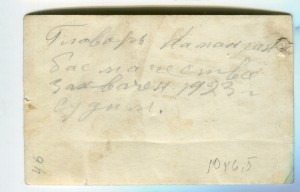 Главарь Наманган
басмачества
Захвачен 1923 г
судим.
10х6,5